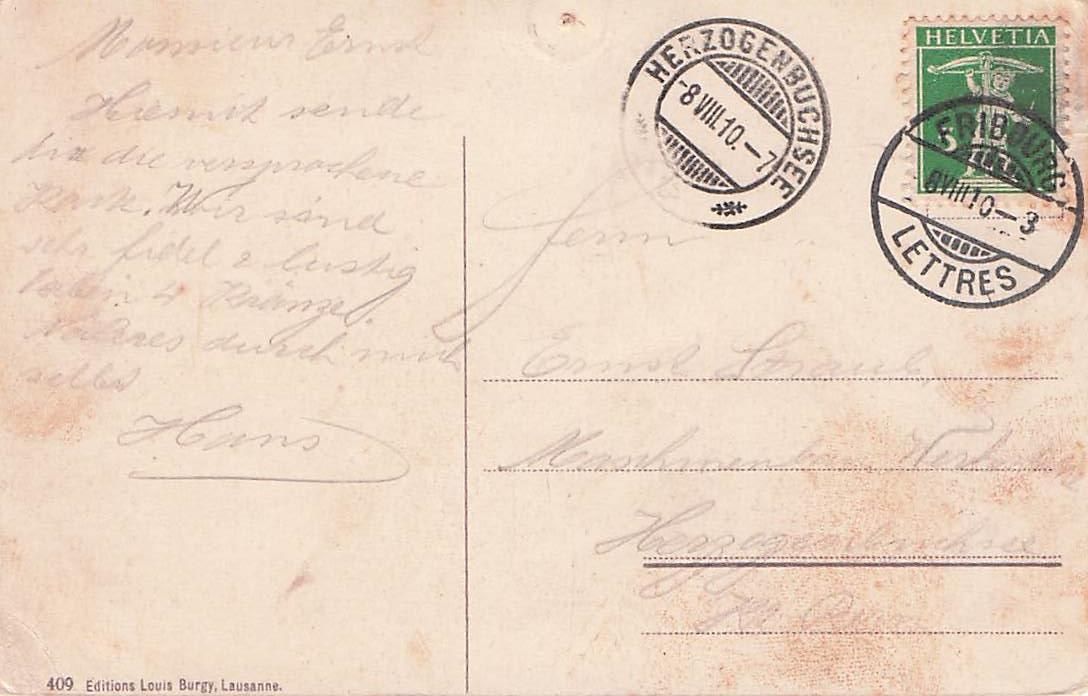 Monsieur Ernst
Hiermit sende
dir die versprochene
Karte. Wir sind
sehr fidel & lustig
haben 4 Kränze.
Näheres durch mich
selbst
Hans
409 Editions Louis Burgy, Lausanne.
HERZOGENBUCHSEE
-8 VIII.10.-7
HELVETIA
5
FRIBOURG
8 VIII 10-3
LETTRES
Herrn
Ernst Straub,
Herzogenbuchsee
Kt. Bern